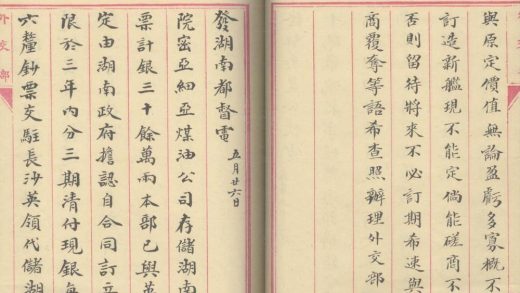 與原定價值無論盈虧多寡概不
訂造新艦現不能定倘能磋商不
否則留待將來不必訂期希速與
商覆奪等語希查照辦理外交部
發湖南都督電 五月廿六日
院密亞細亞煤油公司存儲湖南
票計銀三十餘萬兩本部已與英
定由湖南政府擔認自合同訂立
限於三年內分三期清付現銀每
六釐鈔票交駐長沙英領代儲湖
外交部